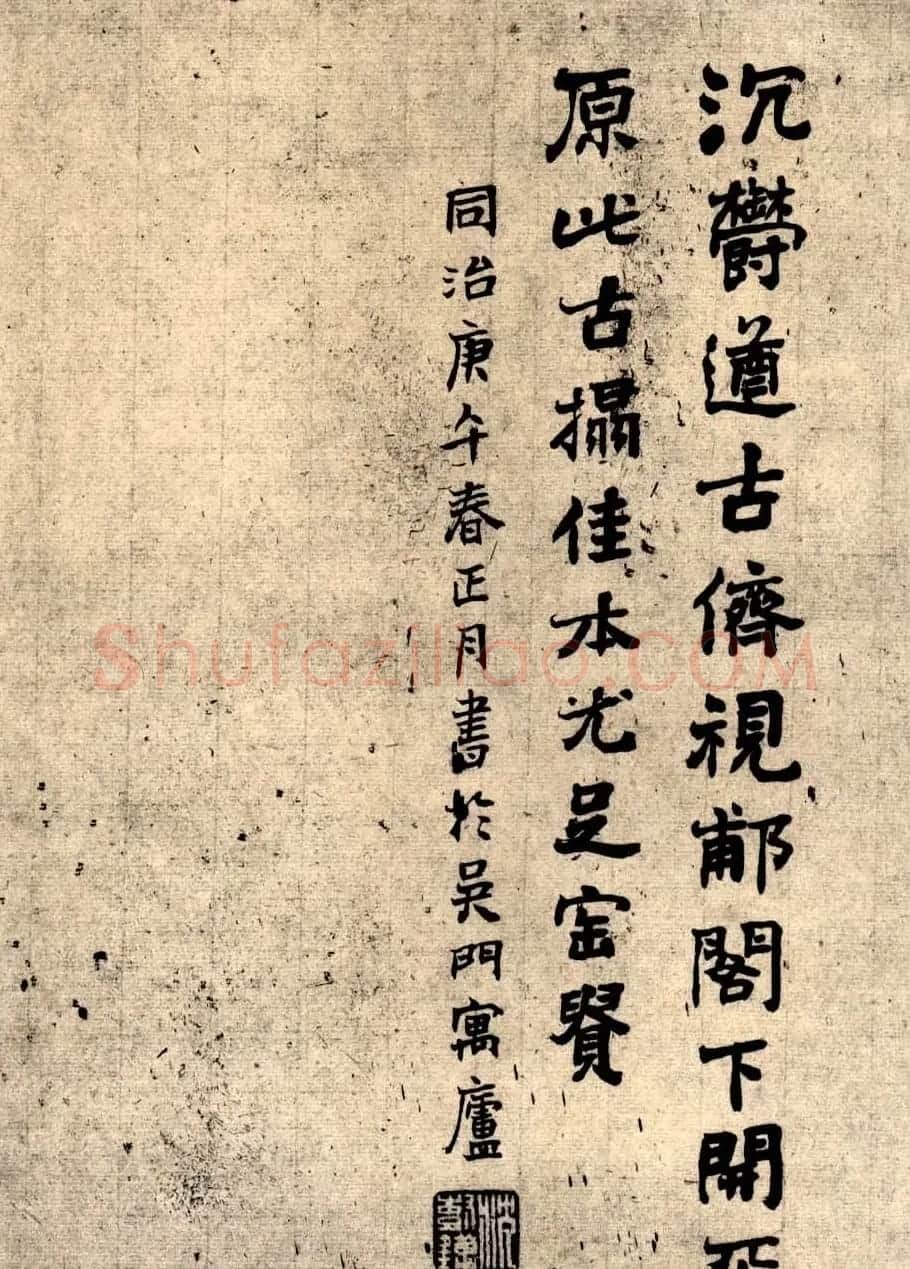 沉鬱遒古儕視郙閣下開
原此古搨佳本尤足
同治庚午春正月書於吳門寓廬
沈樹鏞
Shufaziliao.COM